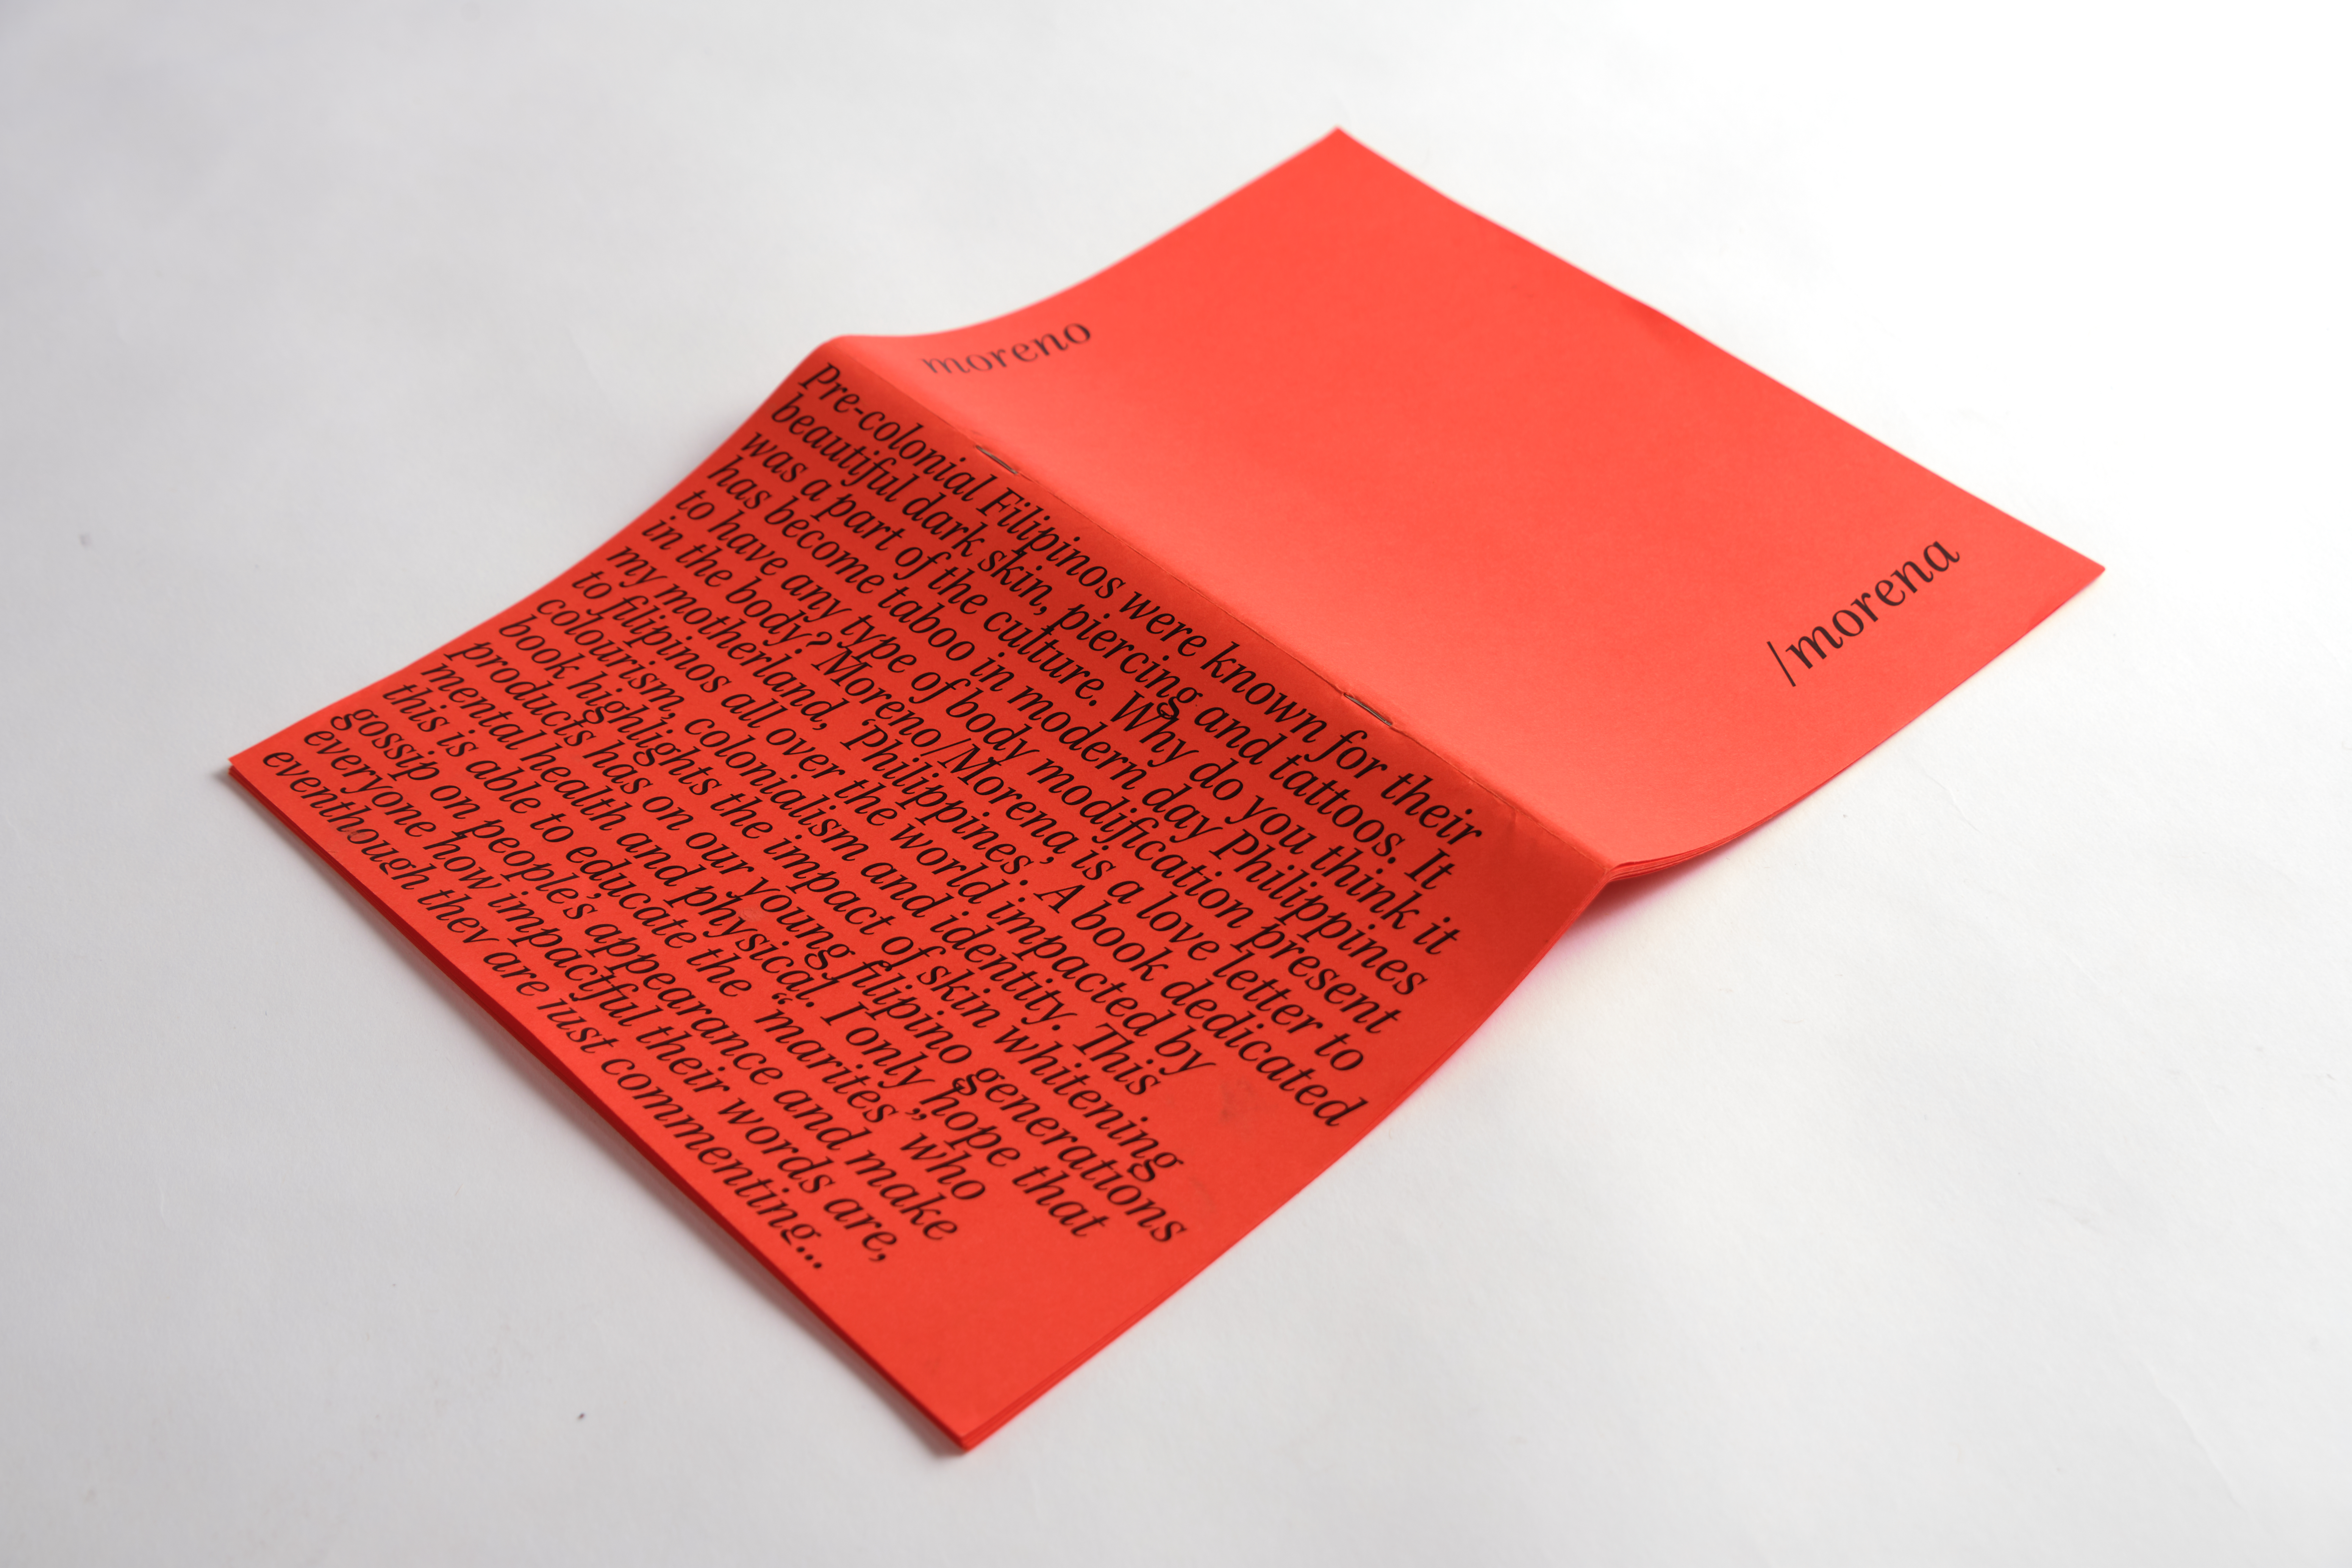 moreno
/morena
Pre-colonial Filipinos were known for their
beautiful dark skin, piercing and tattoos. It
was a part of the culture. Why do you think it
has become taboo in modern day Philippines
to have any type of body modification present
in the body? ‘Moreno/Morena’ is a love letter to
my motherland, ‘Philippines’. A book dedicated
to filipinos all over the world impacted by
colourism, colonialism and identity. This
book highlights the impact of skin whitening
products has on our young filipino generations
mental health and physical. I only hope that
this is able to educate the “marites” who
gossip on people’s appearance and make
everyone how impactful their words are,
eventhough they are just commenting...